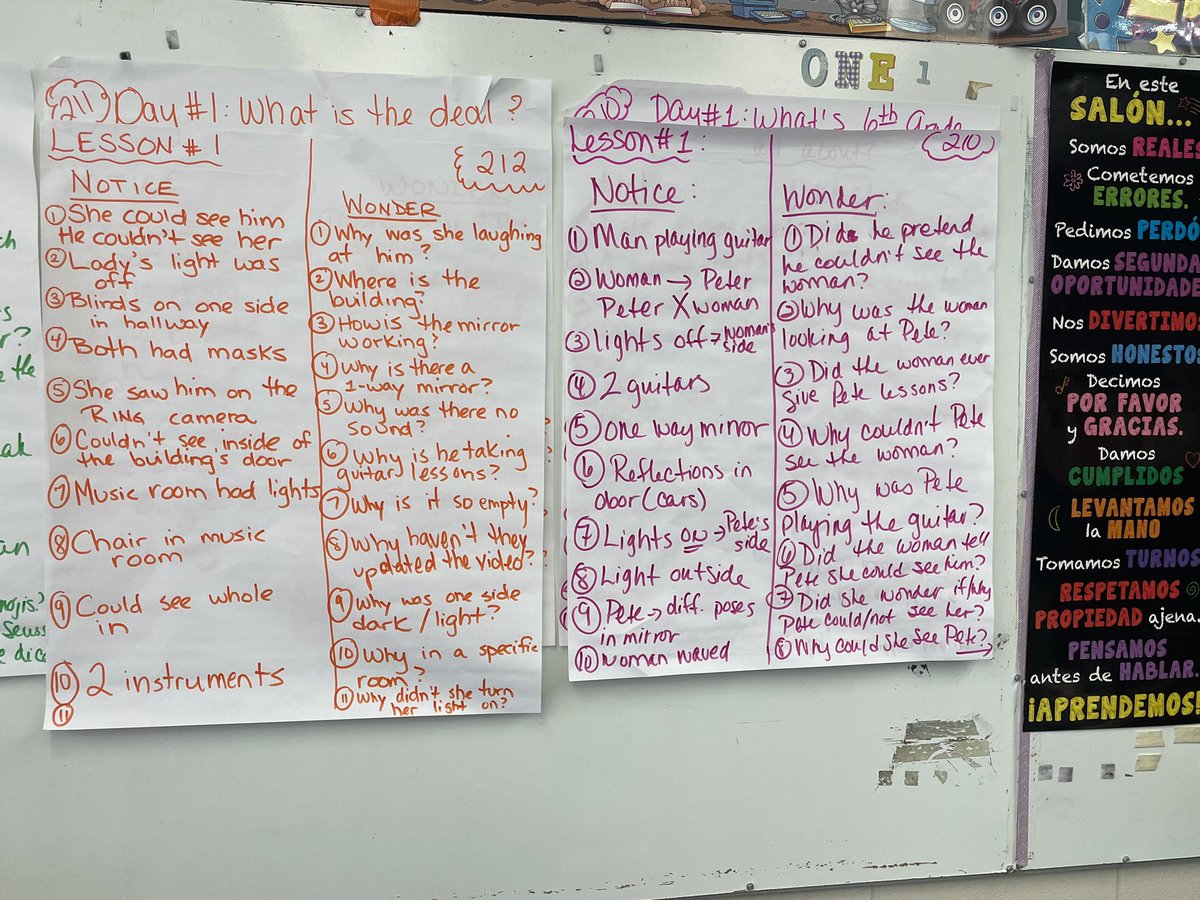 ONE 1
211 Day #1: What is the deal?
LESSON # 1
212
NOTICE
① She could see him
He couldn't see her
② Lady's light was
off
③ Blinds on one side
in hallway
④ Both had masks
⑤ She saw him on the
RING camera
⑥ Couldn't see inside of
the building's door
⑦ Music room had lights
⑧ Chair in music
room
⑨ Could see whole
in
⑩ 2 instruments
⑪
WONDER
① Why was she laughing
at him?
② Where is the
building?
③ How is the mirror
working?
④ Why is there a
1-way mirror?
⑤ Why was there no
sound?
⑥ Why is he taking
guitar lessons?
⑦ Why is it so empty?
⑧ Why haven't they
updated the video?
⑨ Why was one side
dark/light?
⑩ Why in a specific
room?
⑪ Why didn't she turn
her light on?
Day #1: What's 6th Grade
Lesson #1:
210
Notice:
① Man playing guitar
② Woman → Peter
Peter X woman
③ lights off → woman's
side
④ 2 guitars
⑤ one way mirror
⑥ Reflections in
door (cars)
⑦ Lights ON → Pete's
side
⑧ Light outside
⑨ Pete → diff. poses
in mirror
⑩ woman waved
Wonder:
① Did he pretend
he couldn't see the
woman?
② Why was the woman
looking at Pete?
③ Did the woman ever
give Pete lessons?
④ Why couldn't Pete
see the woman?
⑤ Why was Pete
playing the guitar?
⑥ Did the woman tell
Pete she could see him?
⑦ Did she wonder if/why
Pete could/not see her?
⑧ Why could she see Pete?
En este
SALÓN...
Somos REALES
Cometemos
ERRORES.
Pedimos PERDÓ
Damos SEGUNDA
OPORTUNIDADE
Nos DIVERTIMO
Somos HONESTO
Decimos
POR FAVOR
y GRACIAS.
Damos
CUMPLIDOS
LEVANTAMOS
la MANO
Tomamos TURNOS
RESPETAMOS
PROPIEDAD ajena.
PENSAMOS
antes de HABLAR.
¡APRENDEMOS!